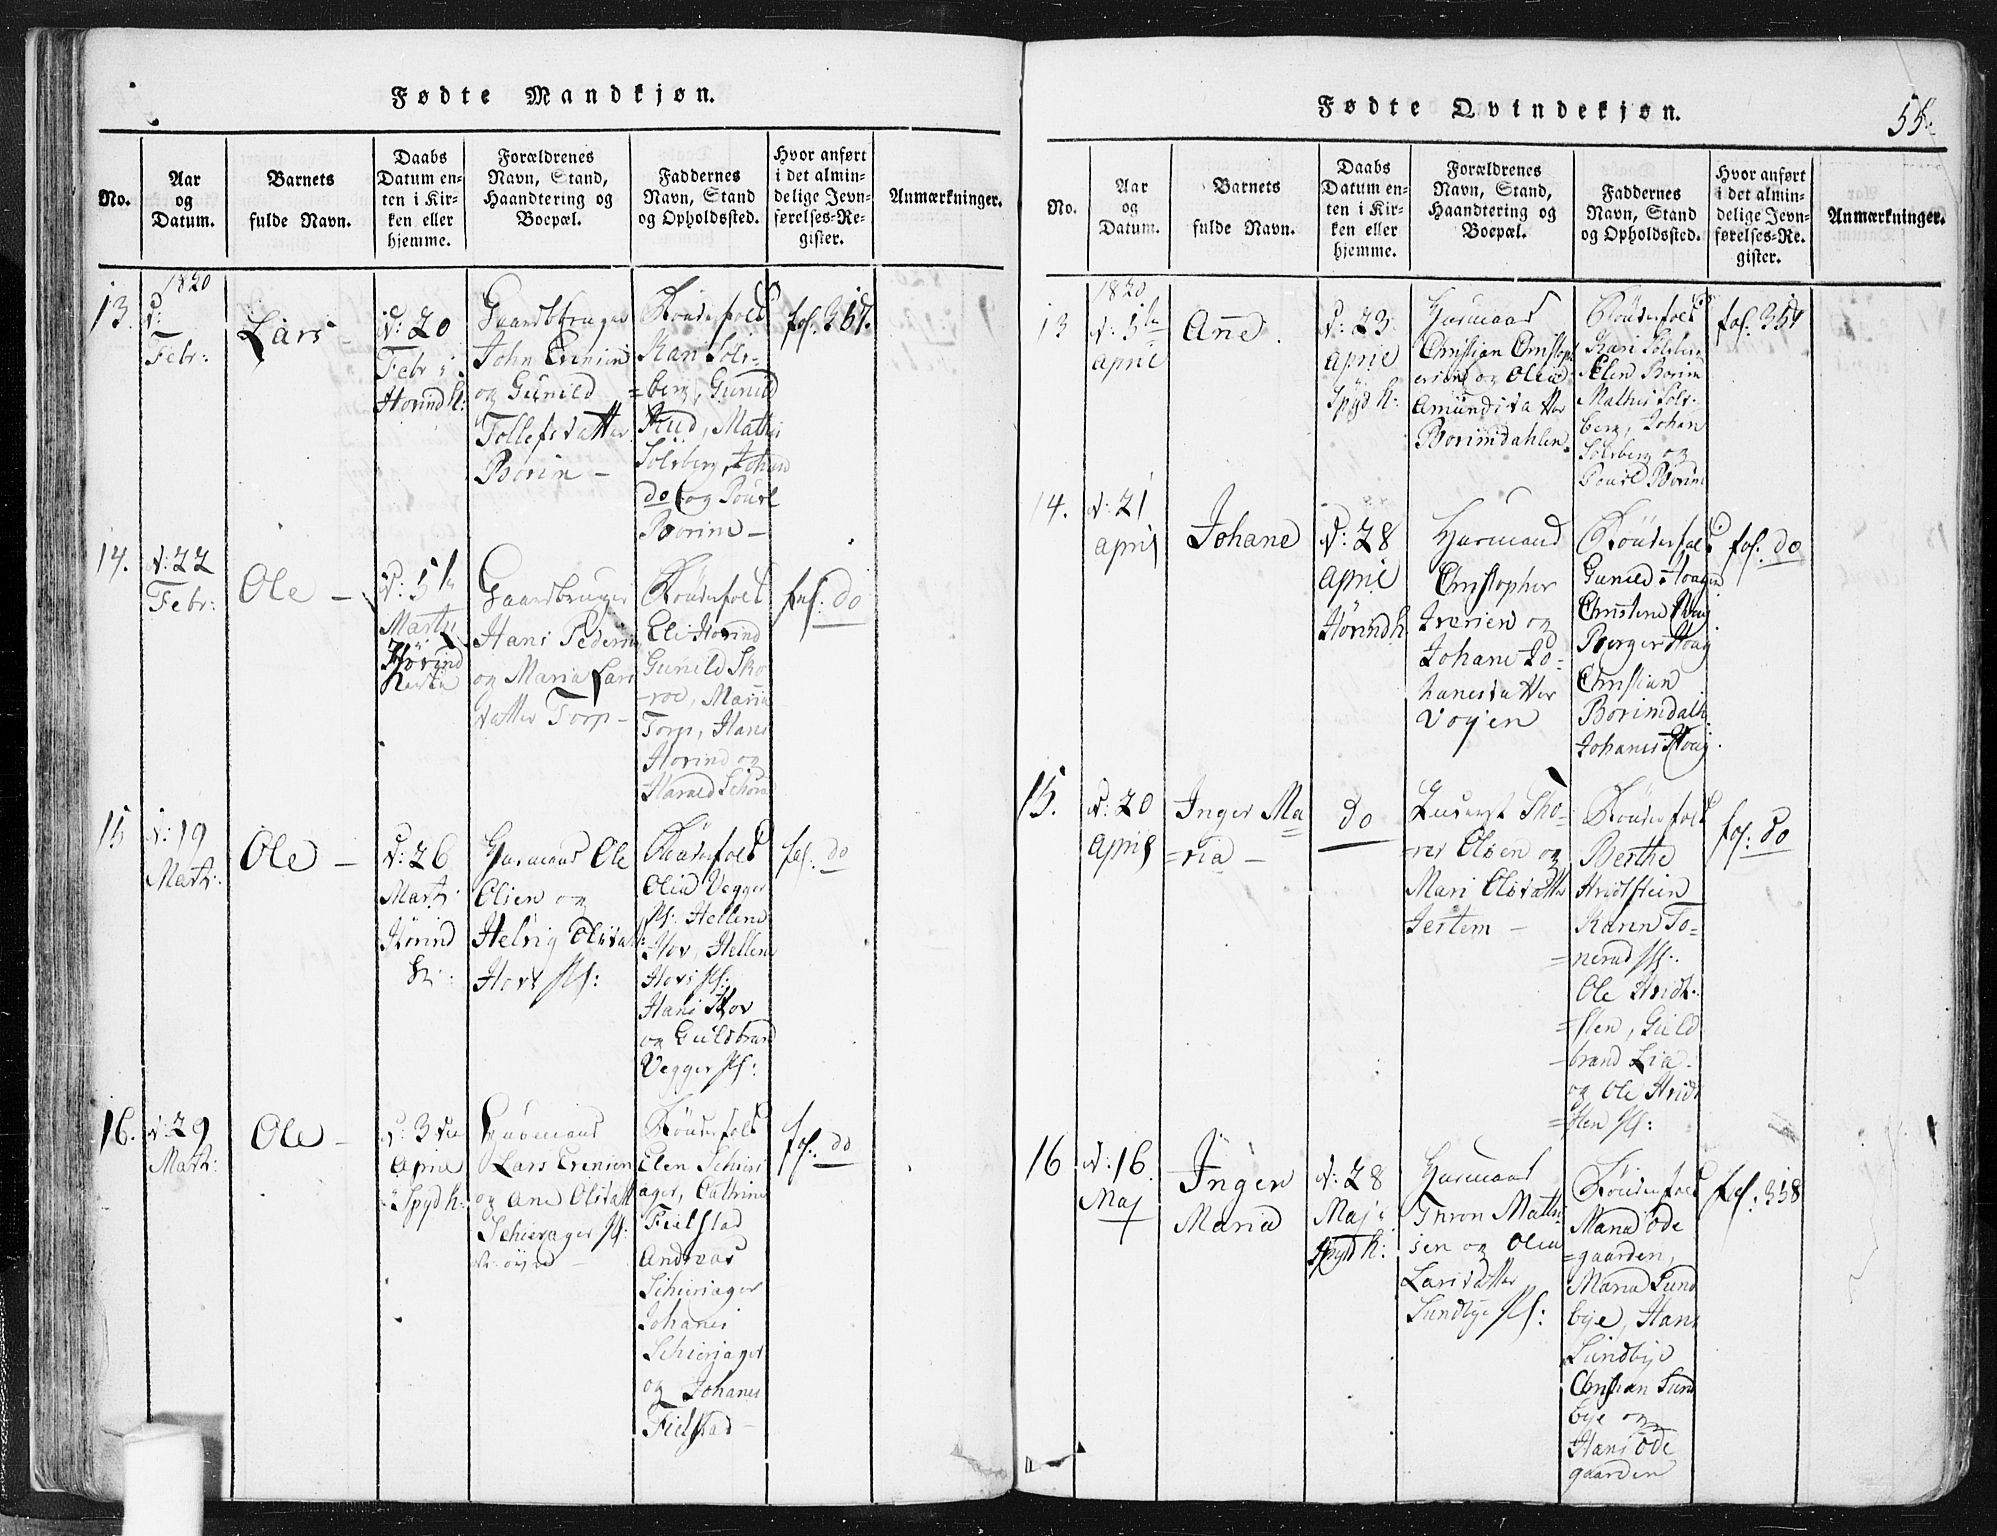 Fødte Mandkjøn.
No.
Aar
og
Datum.
Barnets
fulde Navn.
Daabs
Datum en-
ten i Kir-
ken eller
hjemme.
Forældrenes
Navn, Stand,
Haandtering og
Boepæl.
Faddernes
Navn, Stand
og Opholdssted.
Hvor anført
i det almin-
delige Jevn-
førelses-Re-
gister.
Anmærkninger.
13.
1820
d:
Febr:
Lars
d: 20
Febr i
Hovind k:
Gaardbruger
John
og Gunild
Tollefsdatter
Borin
Bønderfolk
Kari Sols-
=berg, Gunild
Rud, Mathis
Solsberg, Johan
do og Poul
Borim
fol: 357.
14.
d: 22
Febr:
Ole
d: 5te
Martii
Hovind
Kirke
Gaardbruger
Hans Peders
og Maria Lars
datter Torp
Bønderfolk
Eli Hovind
Gunild Sko-
=roe, Maria
Torp, Hans
Hovind og
Harald
fol: do
15
d: 19
Mart:
Ole
d: 26
Mart:
Hovind
K:
Huusmand Ole
Olsen og
Helvig Olsdat
Hovs
Bønderfolk
Olia Vegger
Hellene
Hov, Hellene
Hovs
Hans Hov
og Guldbrand
Vegger
fol: do
16.
d: 29
Mart:
Ole
d: 3die
April
i Spyd k:
Huusmand
Lars Evensen
og Ane Olsdatt
Schieragers
Bønderfolk
Elen Schier
ager, Cathrine
Fielstad
Andreas
Schierjager
Johanes
Schierjager
og Johanes
Fielstad
fol: do
Fødte Qvindekjøn.
55.
No.
Aar
og
Datum.
Barnets
fulde Navn.
Daabs
Datum en-
ten i Kir-
ken eller
hjemme.
Forældrenes
Navn, Stand,
Haandtering og
Boepæl.
Faddernes
Navn, Stand
og Opholdssted.
Hvor anført
i det almin-
delige Jevn-
førelses-Re-
gister.
Anmærkninger.
13
1820
d: 5te
April
Anne.
d: 23
April
i Spyd k:
Huusmand
Christian Christoph
ersen og Olea
Amundsdatter
Borimdahlen
Bønderfolk
Kari Solsberg
Elen Borim
Mathis Sols-
berg, Johan
Solsberg og
Poul Borim
fol: 357
14.
d: 21
April
Johane
d: 28
April
Hovind k
Huusmand
Christopher
Iversen og
Johane Jo-
hanesdatter
Vogen
Bønderfolk
Gunild Houg
Christine Houg
Berger Houg
Christian
Borimdalh:
Johanes Houg.
fol: do
15.
d: 20
April
Inger Ma
=ria
do
Tho-
rer Olsen og
Mari Olsdatter
Jertem
Bønderfolk
Berthe
Hvidsteen
Karen To-
=nerud
Ole Hvid-
=sten, Guld
=brand Lia
og Ole Hvid
=sten
fol: do
16
d: 16
Maj
Inger
Maria
d: 28
Maj i
Spyd k:
Huusmand
Thron Mathi
sen og Olea
Larsdatter
Sundbye
Bønderfolk
Maria Øde
=gaarden,
Maria Sund
bye, Hans
Sundbye
Christian Sund
bye og
Hans Øde
gaarden
fol: 358